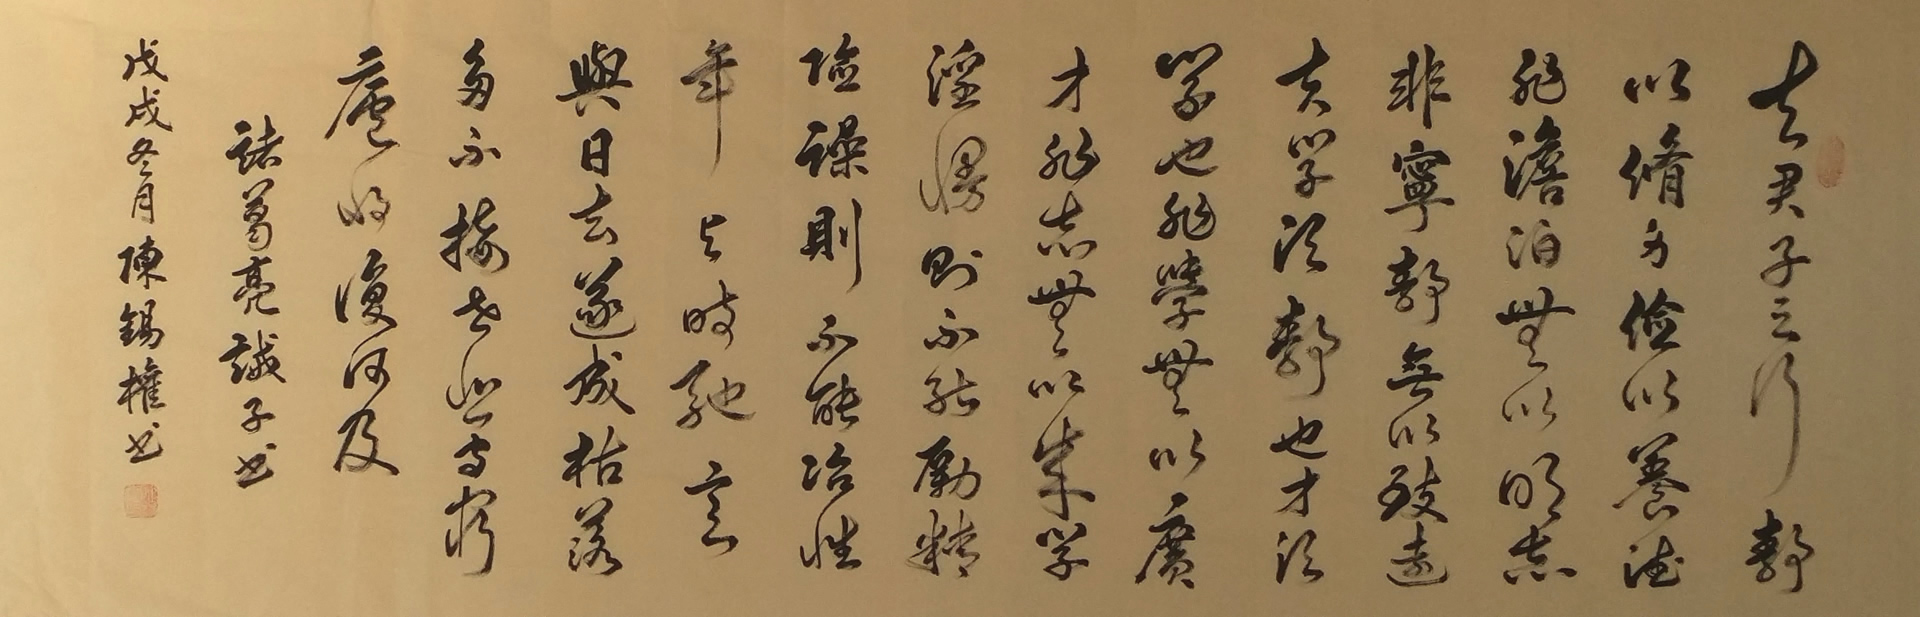 夫君子之行靜
以脩身儉以養德
非澹泊無以明志
非寧靜無以致遠
夫學須靜也才須
學也非學無以廣
才非志無以成學
淫慢則不能勵精
險躁則不能冶性
年與時馳意
與日去遂成枯落
多不接世悲守窮
廬將復何及
諸葛亮誡子書
戊戌冬月陳錫權书